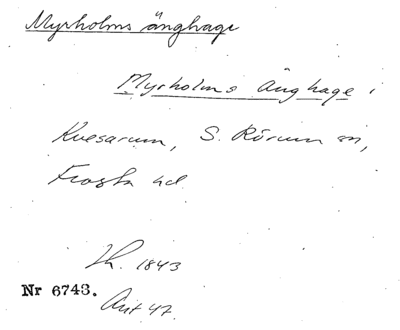 Myrholms änghage
Myrholms Änghage i
Kvesarum, S. Rörum sn,
Frosta hd
Th. 1843
Nr 6743.
Avt 47.